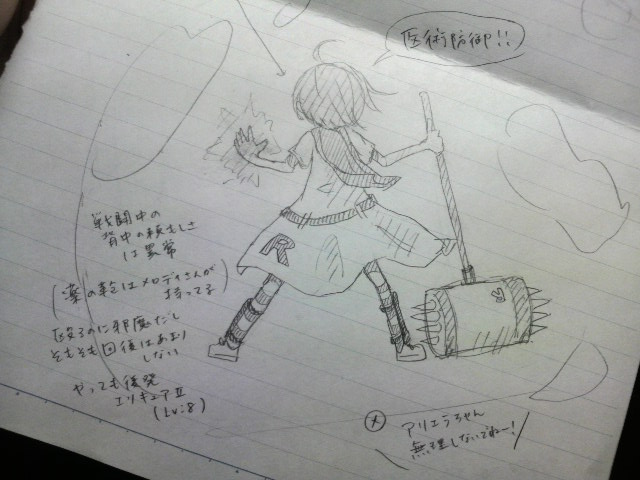 医術防御!!
戦闘中の
背中の頼もしさ
は異常
(薬の鞄はメロディさんが
持ってる)
殴るのに邪魔だし
そもそも回復はあまり
しない
やっても後発
エリキュアⅡ
(Lv:8)
R
メ アリエラちゃん
無理しないでねー!